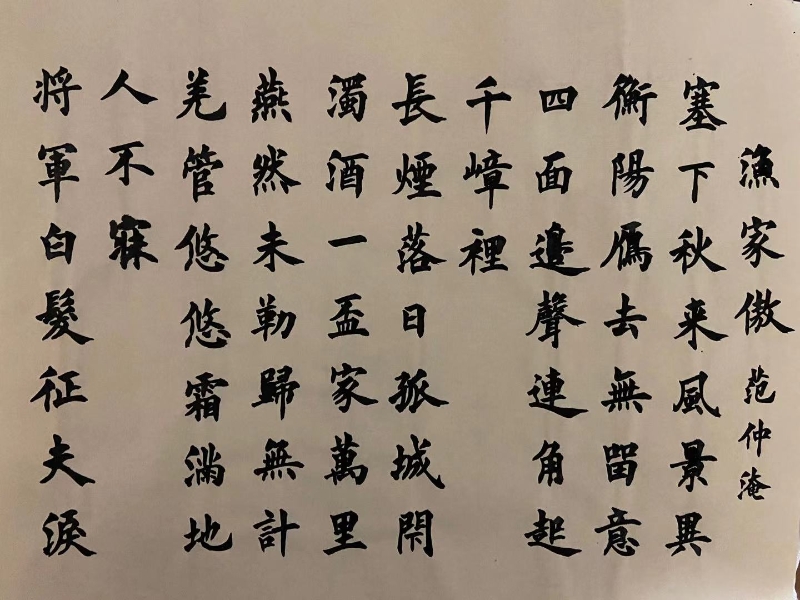 漁家傲 范仲淹
塞下秋来風景異
衡陽鴈去無留意
四面邊聲連角起
千嶂裡
長煙落日孤城閇
濁酒一盃家萬里
燕然未勒歸無計
羌管悠悠霜滿地
人不寐
将軍白髮征夫淚